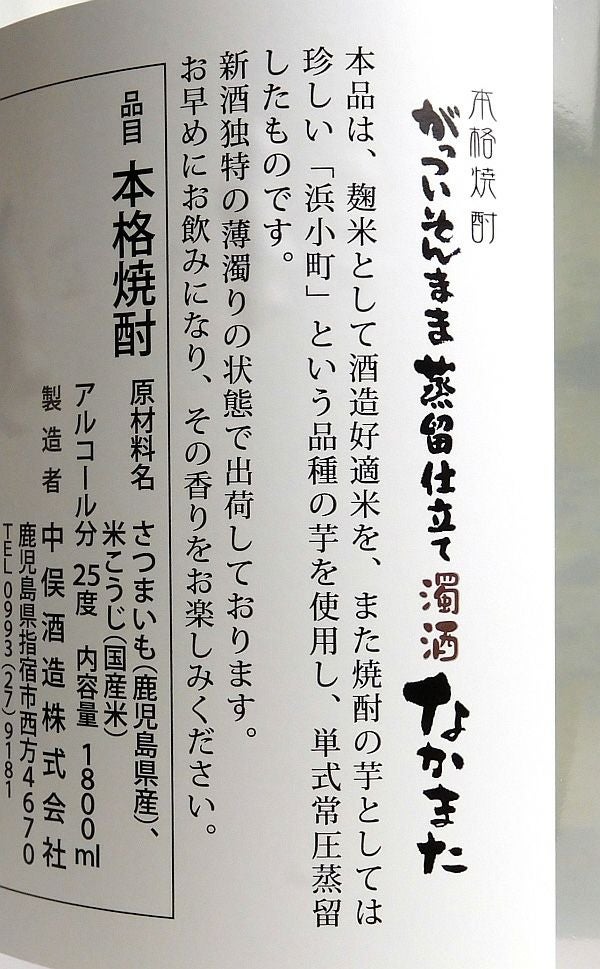 本格焼酎
がっついそんまま蒸留仕立て 濁酒 なかまた
本品は、麹米として酒造好適米を、また焼酎の芋としては
珍しい「浜小町」という品種の芋を使用し、単式常圧蒸留
したものです。
新酒独特の薄濁りの状態で出荷しております。
お早めにお飲みになり、その香りをお楽しみください。
品目 本格焼酎
原材料名 さつまいも(鹿児島県産)、
米こうじ(国産米)
アルコール分 25度 内容量 1800ml
製造者 中俣酒造株式会社
鹿児島県指宿市西方4670
TEL 0993(27)9181